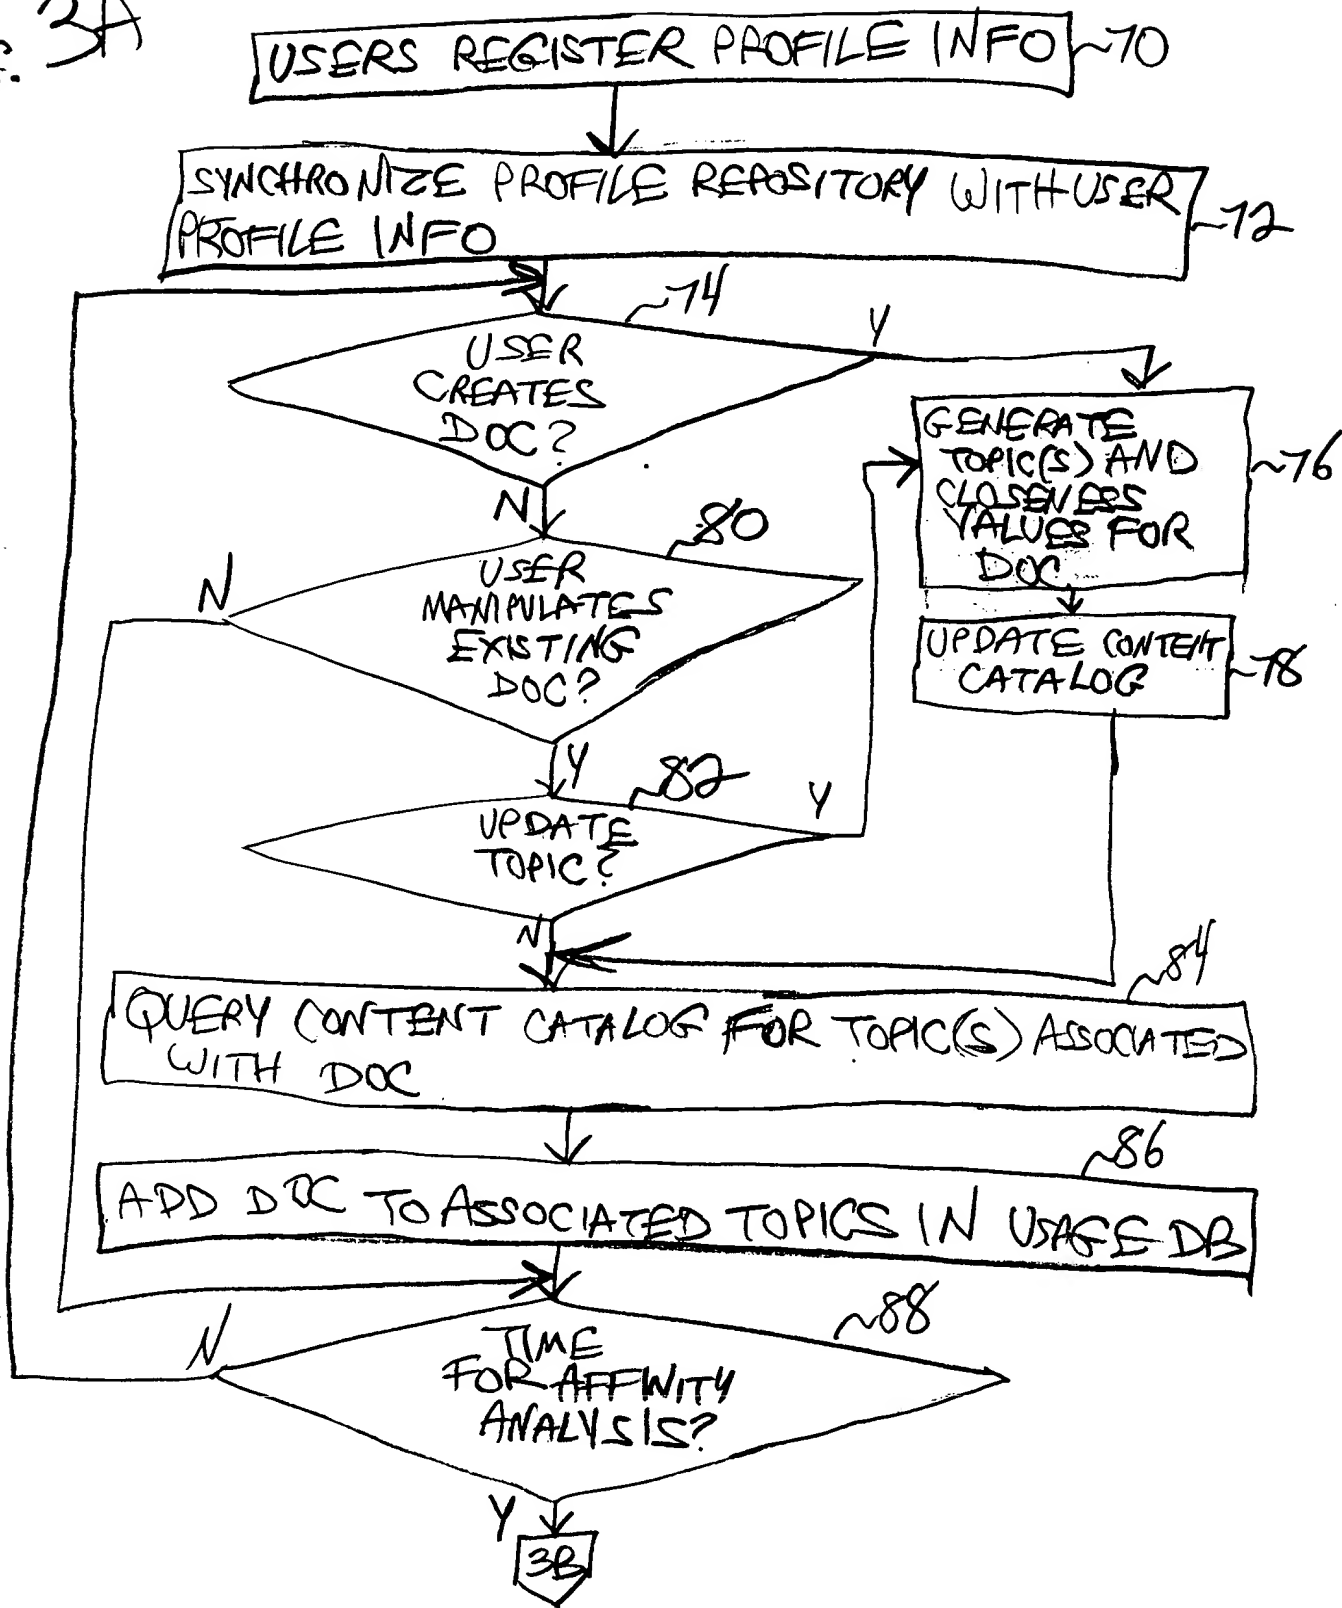 3A
USERS REGISTER PROFILE INFO
70
SYNCHRONIZE PROFILE REPOSITORY WITH USER
PROFILE INFO
72
74
Y
USER
CREATES
DOC?
GENERATE
TOPIC(S) AND
CLOSENESS
VALUES FOR
DOC
76
N
80
N
USER
MANIPULATES
EXISTING
DOC?
UPDATE CONTENT
CATALOG
78
Y
82
Y
UPDATE
TOPIC?
N
84
QUERY CONTENT CATALOG FOR TOPIC(S) ASSOCIATED
WITH DOC
86
ADD DOC TO ASSOCIATED TOPICS IN USAGE DB
88
N
TIME
FOR AFFINITY
ANALYSIS?
Y
3B